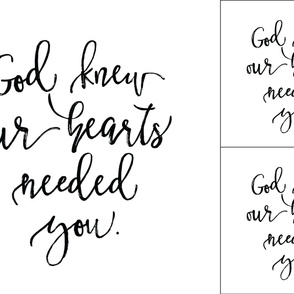 God knew
our hearts
needed
you.
God
our
needed
you
God
our
needed
you